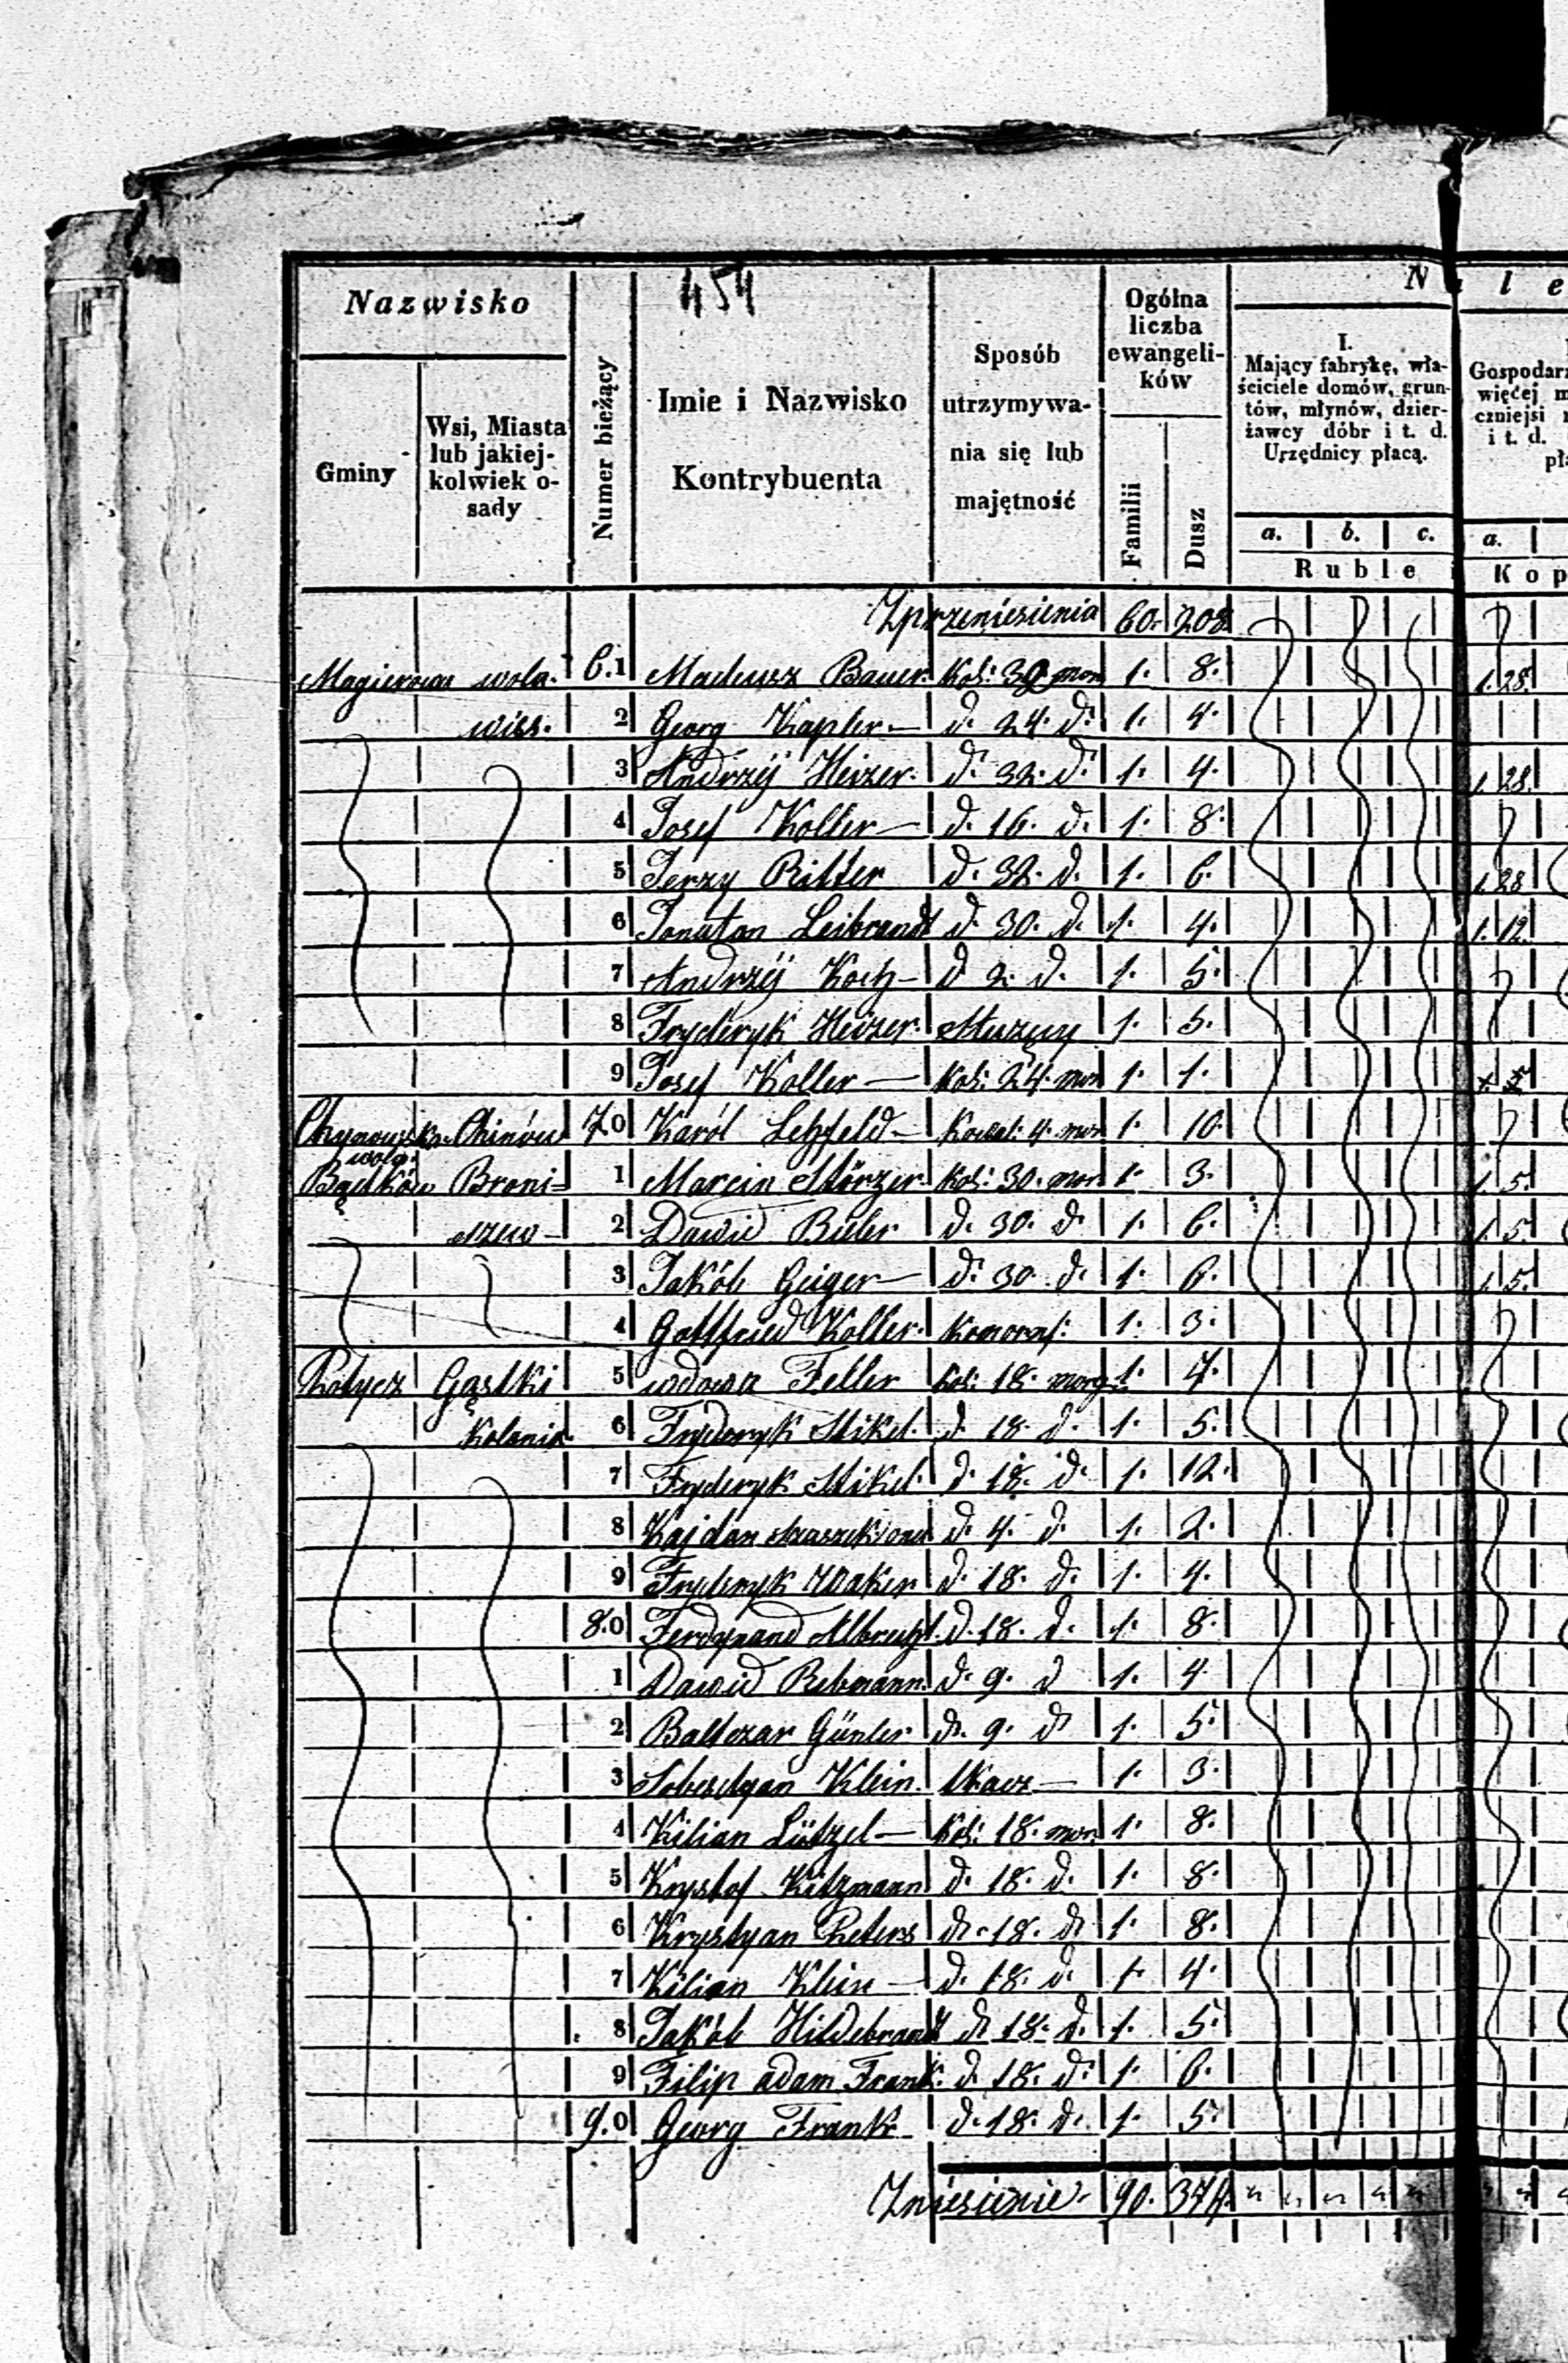 454
Nazwisko
Gminy
Wsi, Miasta lub jakiej-kolwiek o-sady
Numer bieżący
Imie i Nazwisko Kontrybuenta
Sposób utrzymywa-nia się lub majętność
Ogólna liczba ewangeli-ków
Familii
Dusz
N a l e
I.
Mający fabrykę, wła-ściciele domów, grun-tów, młynów, dzier-żawcy dóbr i t. d. Urzędnicy płacą.
a. b. c.
Ruble
Gospodar
więcej m
czniejsi
i t. d.
pł
a.
Kop
Zprzeniesienia 60. 208
Magierowa wola. 6.1 Madeusz Bauer. Kol: 30 mor 1. 8. 1.28.
wies. 2 Georg Kapler— d. 24. d. 1. 4.
3 Andrzÿ Heizer. d. 32. d. 1. 4. 1.28.
4 Josef Koller— d. 16. d. 1. 8.
5 Jerzy Ritter d. 32. d. 1. 6. 1.28
6 Jonatan Leibrandt d. 30. d. 1. 4. 1.12.
7 Andrzÿ Koch— d 2. d. 1. 5.
8 Fryderyk Heizer. 1. 5.
9 Josef Koller— Kol: 24. mor 1. 1.
Chynowska wola. Chinów 7.0 Karól Lehfeld— Kowal: 4. mor 1. 10.
Bądków Broni= 1 Marcin Störzer. Kol: 30. mor 1. 3. 1. 5.
szew— 2 Dawid Bieler d. 30. d. 1. 6. 1. 5.
3 Jakób Geiger— d. 30. d. 1. 6. 1. 5.
4 Gottfried Koller. Komorn: 1. 3.
Potycz Gąstki 5 wdowa Feller kol: 18. morg: 1. 7.
Kolonia 6 Fryderyk Stikel. d. 18. d. 1. 5.
7 Fryderyk Stikel. d. 18. d. 1. 12.
8 Kajdan d. 4. d. 1. 2.
9 Fryderyk Waker d. 18. d. 1. 4.
8.0 Ferdynand Albrecht. d. 18. d. 1. 8.
1 Dawid Rebmann. d. 9. d 1. 4
2 Baltezar Günter d. 9. d 1. 5.
3 Sobestyan Klein. tkacz— 1. 3.
4 Kilian Lützel— Kol: 18. mor. 1. 8.
5 Krystof Kitzmann d. 18. d. 1. 8.
6 Krystyan Peters d. 18. d. 1. 8.
7 Kilian Klein— d. 18. d. 1. 4.
8 Jakób Hildebrandt d. 18. d. 1. 5.
9 Filip adam Frank. d. 18. d. 1. 6.
9.0 Georg Frank d. 18. d. 1. 5.
Zniesienie. 90. 374.